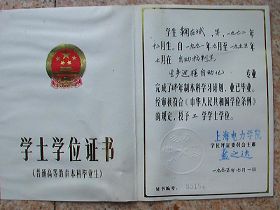 学士学位证书
(普通高等教育本科毕业生)
学生
一九七二年
月生。自一九九一年九月至一九九五年
七月在
生产过程自动化 专业
完成了四年制本科学习计划，业已毕业。
经审核符合《中华人民共和国学位条例》
的规定，授予工学学士学位。
上海电力学院
学位评定委员会主席
一九九五年七月一日
证书编号：